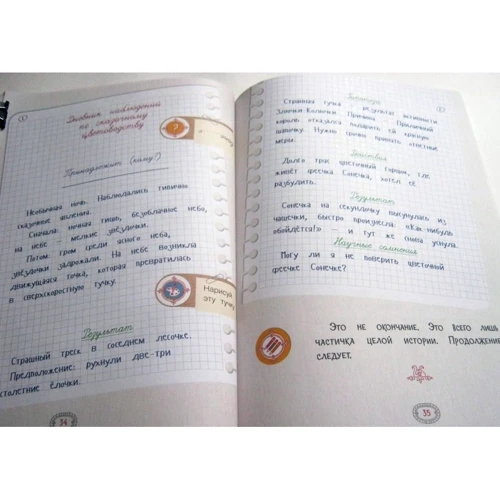 Дневник наблюдений
по сказочному
цветоводству
Принадлежит (кому?)
Необычная ночь. Наблюдались типично
сказочные явления.
Сначала - ночная тишь, безоблачное небо,
на небе - мелкие звёздочки.
Потом гром среди ясного неба,
звёздочки задрожали. На небе возникла
движущаяся точка, которая превратилась
в сверхскоростную тучку.
Нарисуй
эту тучк
Результат
Страшный треск в соседнем лесочке.
Предположение: рухнули две-три
столетние ёлочки.
34
Странная тучка - результат активности
Злючки-Колючки. Причина
король отказался подарить ей красную
шапочку. Нужно срочно принять ответные
меры.
Действия
Долго тряс цветочный горшок, где
живёт феечка Сонечка, хотел её
разбудить.
Результат
Сонечка на секундочку высунулась из
чашечки, быстро произнесла: «Как-нибудь
обойдётся!» - и тут же снова уснула.
Научные сомнения
Могу ли я не поверить цветочной
феечке Сонечке?
Это не окончание. Это всего лишь
частичка целой истории. Продолжение
следует.
35